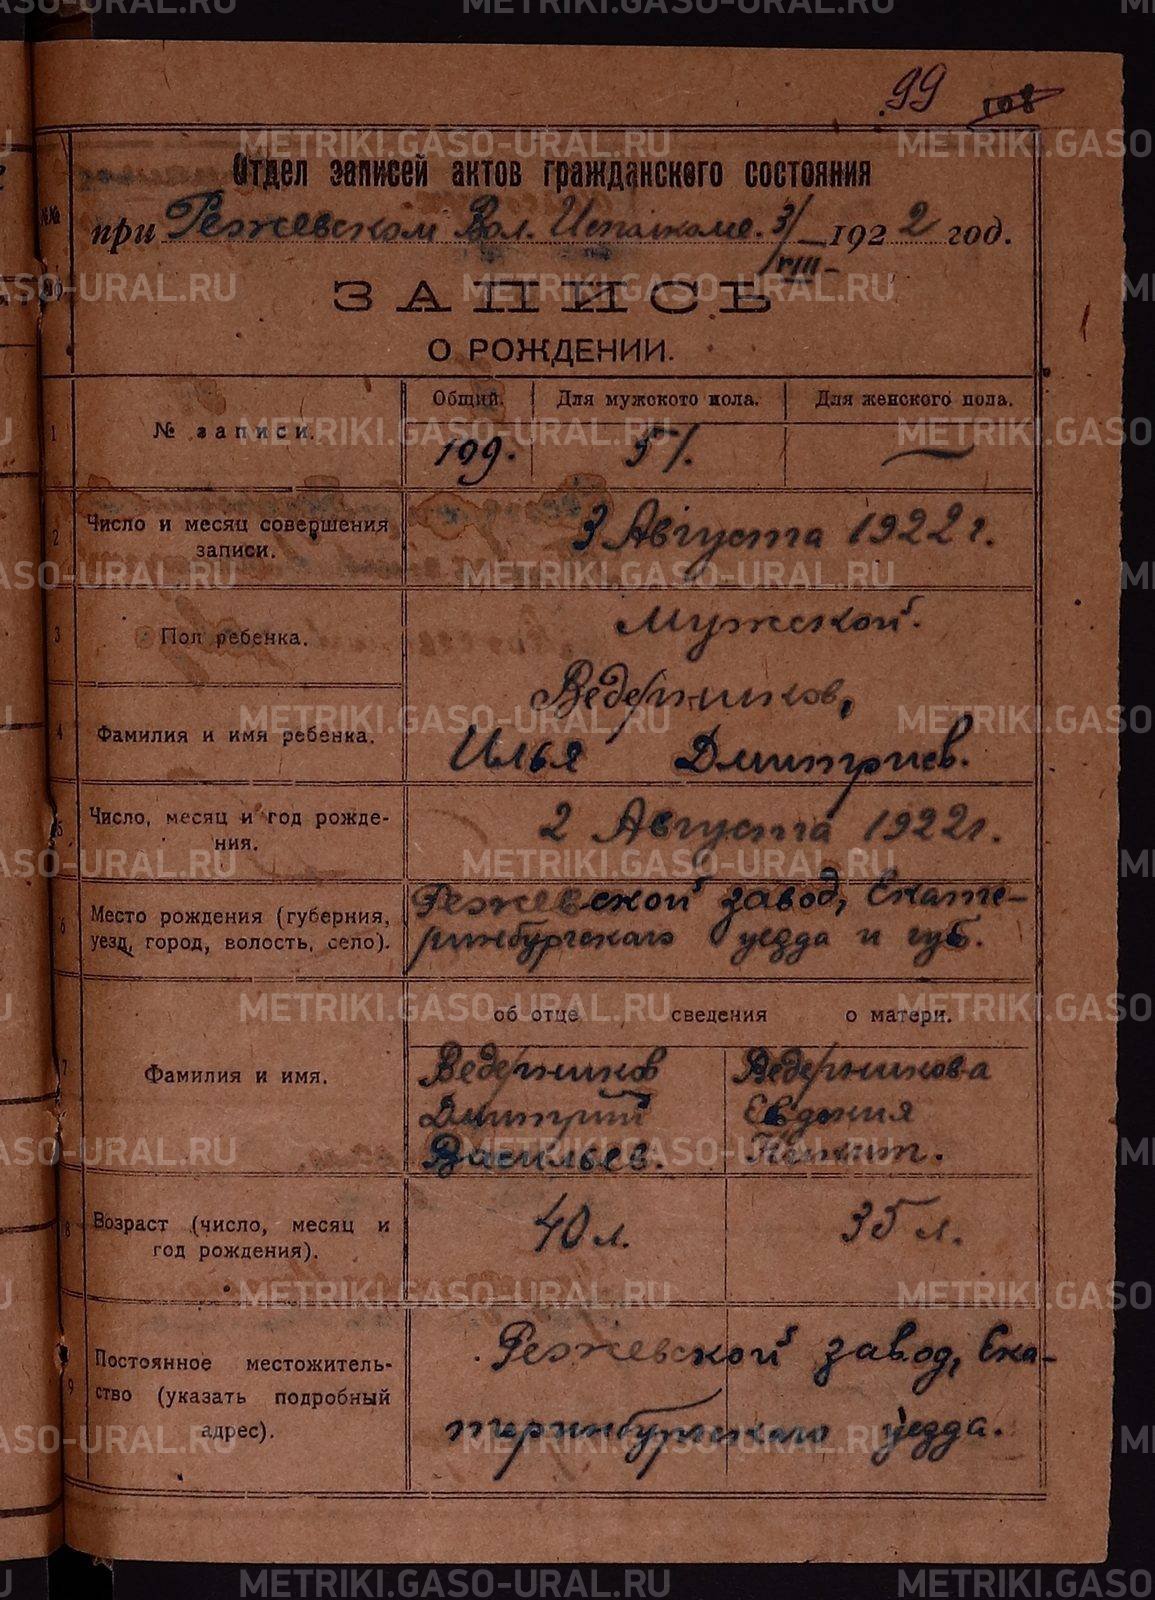 99 108
Отдел записей актов гражданского состояния
при Режевском Вол. Исполкоме. 3/VIII- 1922 год.
ЗАПИСЬ
О РОЖДЕНИИ.
1
1 № записи. Общий. Для мужского пола. Для женского пола.
109. 51. —
2 Число и месяц совершения записи.
3 Августа 1922 г.
3 Пол ребенка. Мужской.
Ведерников,
4 Фамилия и имя ребенка. Илья Дмитриев.
5 Число, месяц и год рожде-
ния.
2 Августа 1922 г.
6 Место рождения (губерния,
уезд, город, волость, село).
Режевской завод, Екате-
ринбургскаго уезда и губ.
об отце сведения о матери.
7 Фамилия и имя.
Ведерников Ведерникова
Дмитрий Евдокия
Васильев. Никит.
8 Возраст (число, месяц и
год рождения).
40 л. 35 л.
9 Постоянное местожитель-
ство (указать подробный
адрес).
Режевской завод, Ека-
теринбургскаго уезда.
METRIKI.GASO-URAL.RU